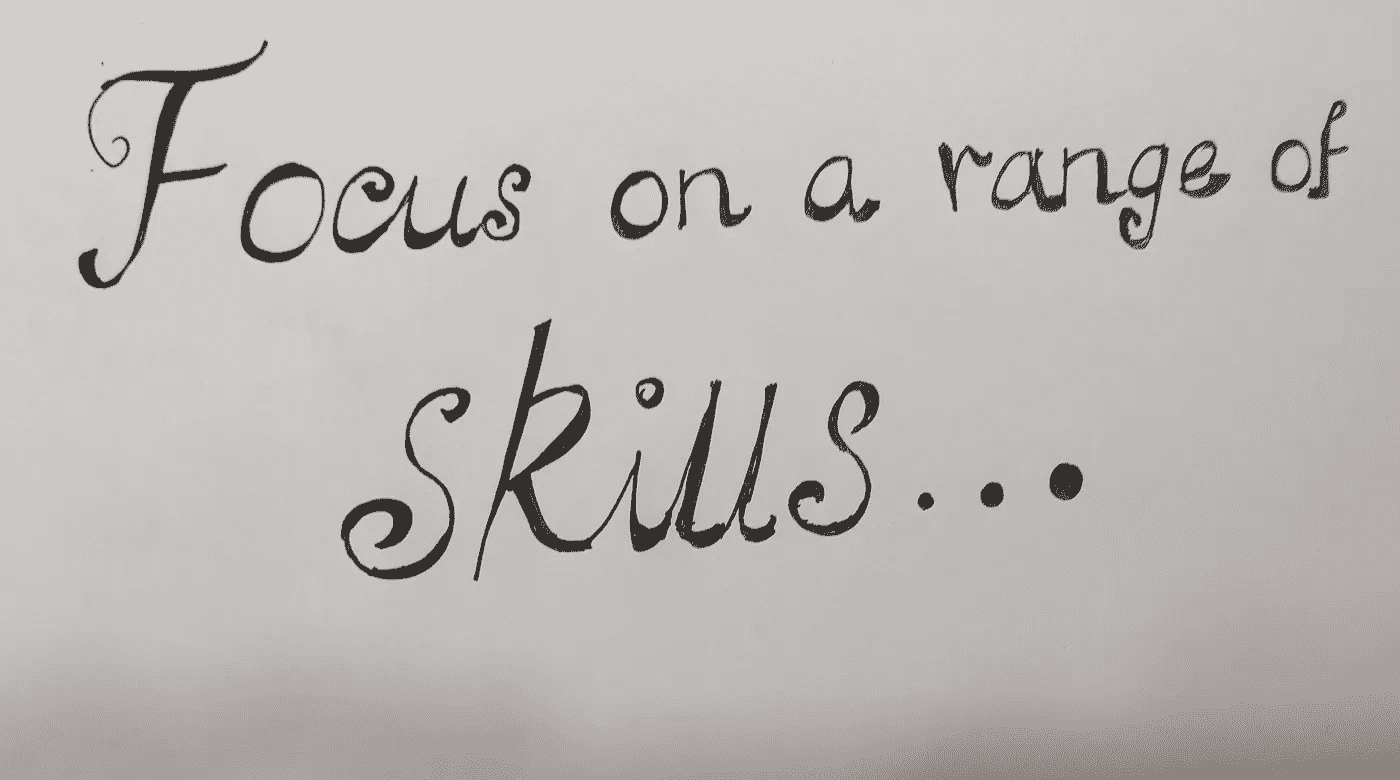 Focus on a range of
skills...